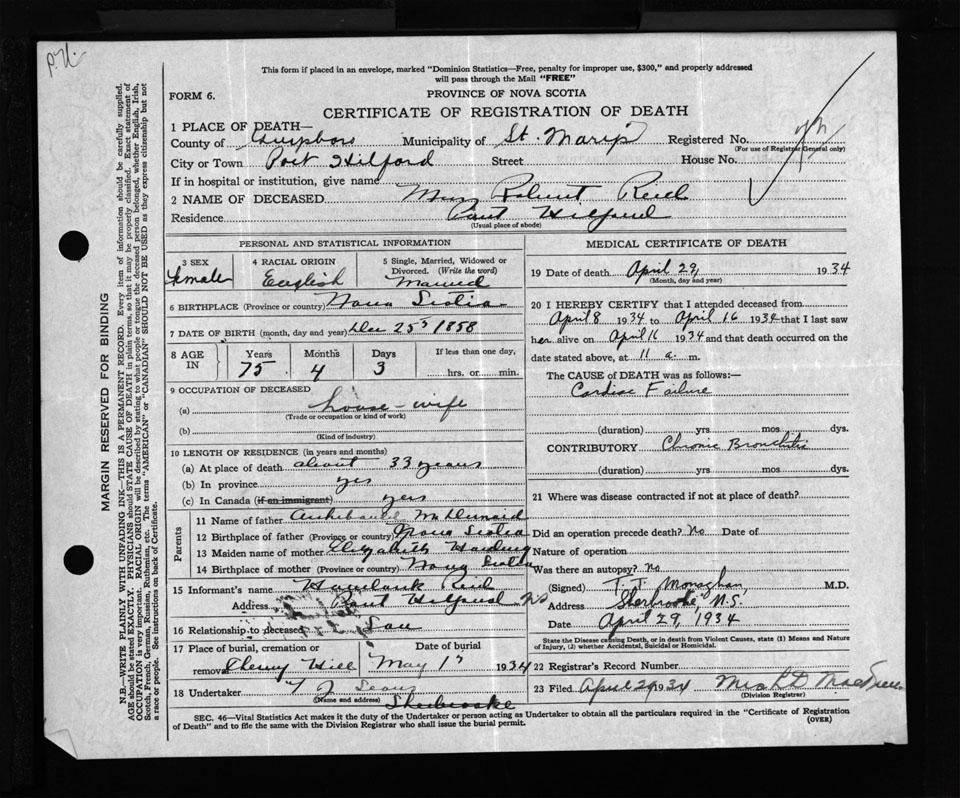 This form if placed in an envelope, marked "Dominion Statistics—Free, penalty for improper use, $300," and properly addressed
will pass through the Mail "FREE"
FORM 6.
PROVINCE OF NOVA SCOTIA
CERTIFICATE OF REGISTRATION OF DEATH
1 PLACE OF DEATH—
County of Guysboro Municipality of St. Mary's Registered No.
(For use of Registrar General only)
City or Town Port Hilford Street House No.
If in hospital or institution, give name
2 NAME OF DECEASED Mrs Robert Reid
Residence Port Hilford
(Usual place of abode)
PERSONAL AND STATISTICAL INFORMATION
3 SEX 4 RACIAL ORIGIN 5 Single, Married, Widowed or Divorced. (Write the word)
female English Married
6 BIRTHPLACE (Province or country) Nova Scotia
7 DATE OF BIRTH (month, day and year) Dec 25th 1858
8 AGE IN Years Months Days If less than one day,
75 4 3 hrs. or min.
9 OCCUPATION OF DECEASED
(a) house-wife
(Trade or occupation or kind of work)
(b)
(Kind of industry)
10 LENGTH OF RESIDENCE (in years and months)
(a) At place of death about 33 years
(b) In province yes
(c) In Canada (if an immigrant) yes
Parents
11 Name of father
12 Birthplace of father (Province or country) Nova Scotia
13 Maiden name of mother Elizabeth
14 Birthplace of mother (Province or country) Nova Scotia
15 Informant's name Reid
Address Port Hilford NS
16 Relationship to deceased Son
17 Place of burial, cremation or
removal Cherry Hill May 1st 1934
18 Undertaker
(Name and address) Sherbrooke
MEDICAL CERTIFICATE OF DEATH
19 Date of death April 29, 1934
(Month, day and year)
20 I HEREBY CERTIFY that I attended deceased from
April 8 1934 to April 16 1934 that I last saw
her alive on April 16 1934 and that death occurred on the
date stated above, at 11 a. m.
The CAUSE of DEATH was as follows:—
Cardiac Failure
(duration) yrs mos dys.
CONTRIBUTORY Chronic Bronchitis
(duration) yrs. mos. dys.
21 Where was disease contracted if not at place of death?
Did an operation precede death? No Date of
Nature of operation
Was there an autopsy? No
(Signed) T. T. Monaghan, M.D.
Address Sherbrooke, N.S.
Date April 29, 1934
State the Disease causing Death, or in death from Violent Causes, state (1) Means and Nature
of Injury, (2) whether Accidental, Suicidal or Homicidal.
22 Registrar's Record Number
23 Filed April 29 1934 Mrs
(Division Registrar)
SEC. 46—Vital Statistics Act makes it the duty of the Undertaker or person acting as Undertaker to obtain all the particulars required in the "Certificate of Registration
of Death" and to file the same with the Division Registrar who shall issue the burial permit.
(OVER)
MARGIN RESERVED FOR BINDING
N.B.—WRITE PLAINLY WITH UNFADING INK—THIS IS A PERMANENT RECORD. Every item of information should be carefully supplied.
AGE should be stated EXACTLY. PHYSICIANS should STATE CAUSE OF DEATH in plain terms, so that it may be properly classified. Exact statement of
OCCUPATION is very important. RACIAL ORIGIN will be described by stating to what people or tongue the deceased person belonged, whether English, Irish,
Scotch, French, German, Russian, Ruthenian, etc. The terms "AMERICAN" or "CANADIAN" SHOULD NOT BE USED as they express citizenship but not
a race or people. See instructions on back of Certificate.